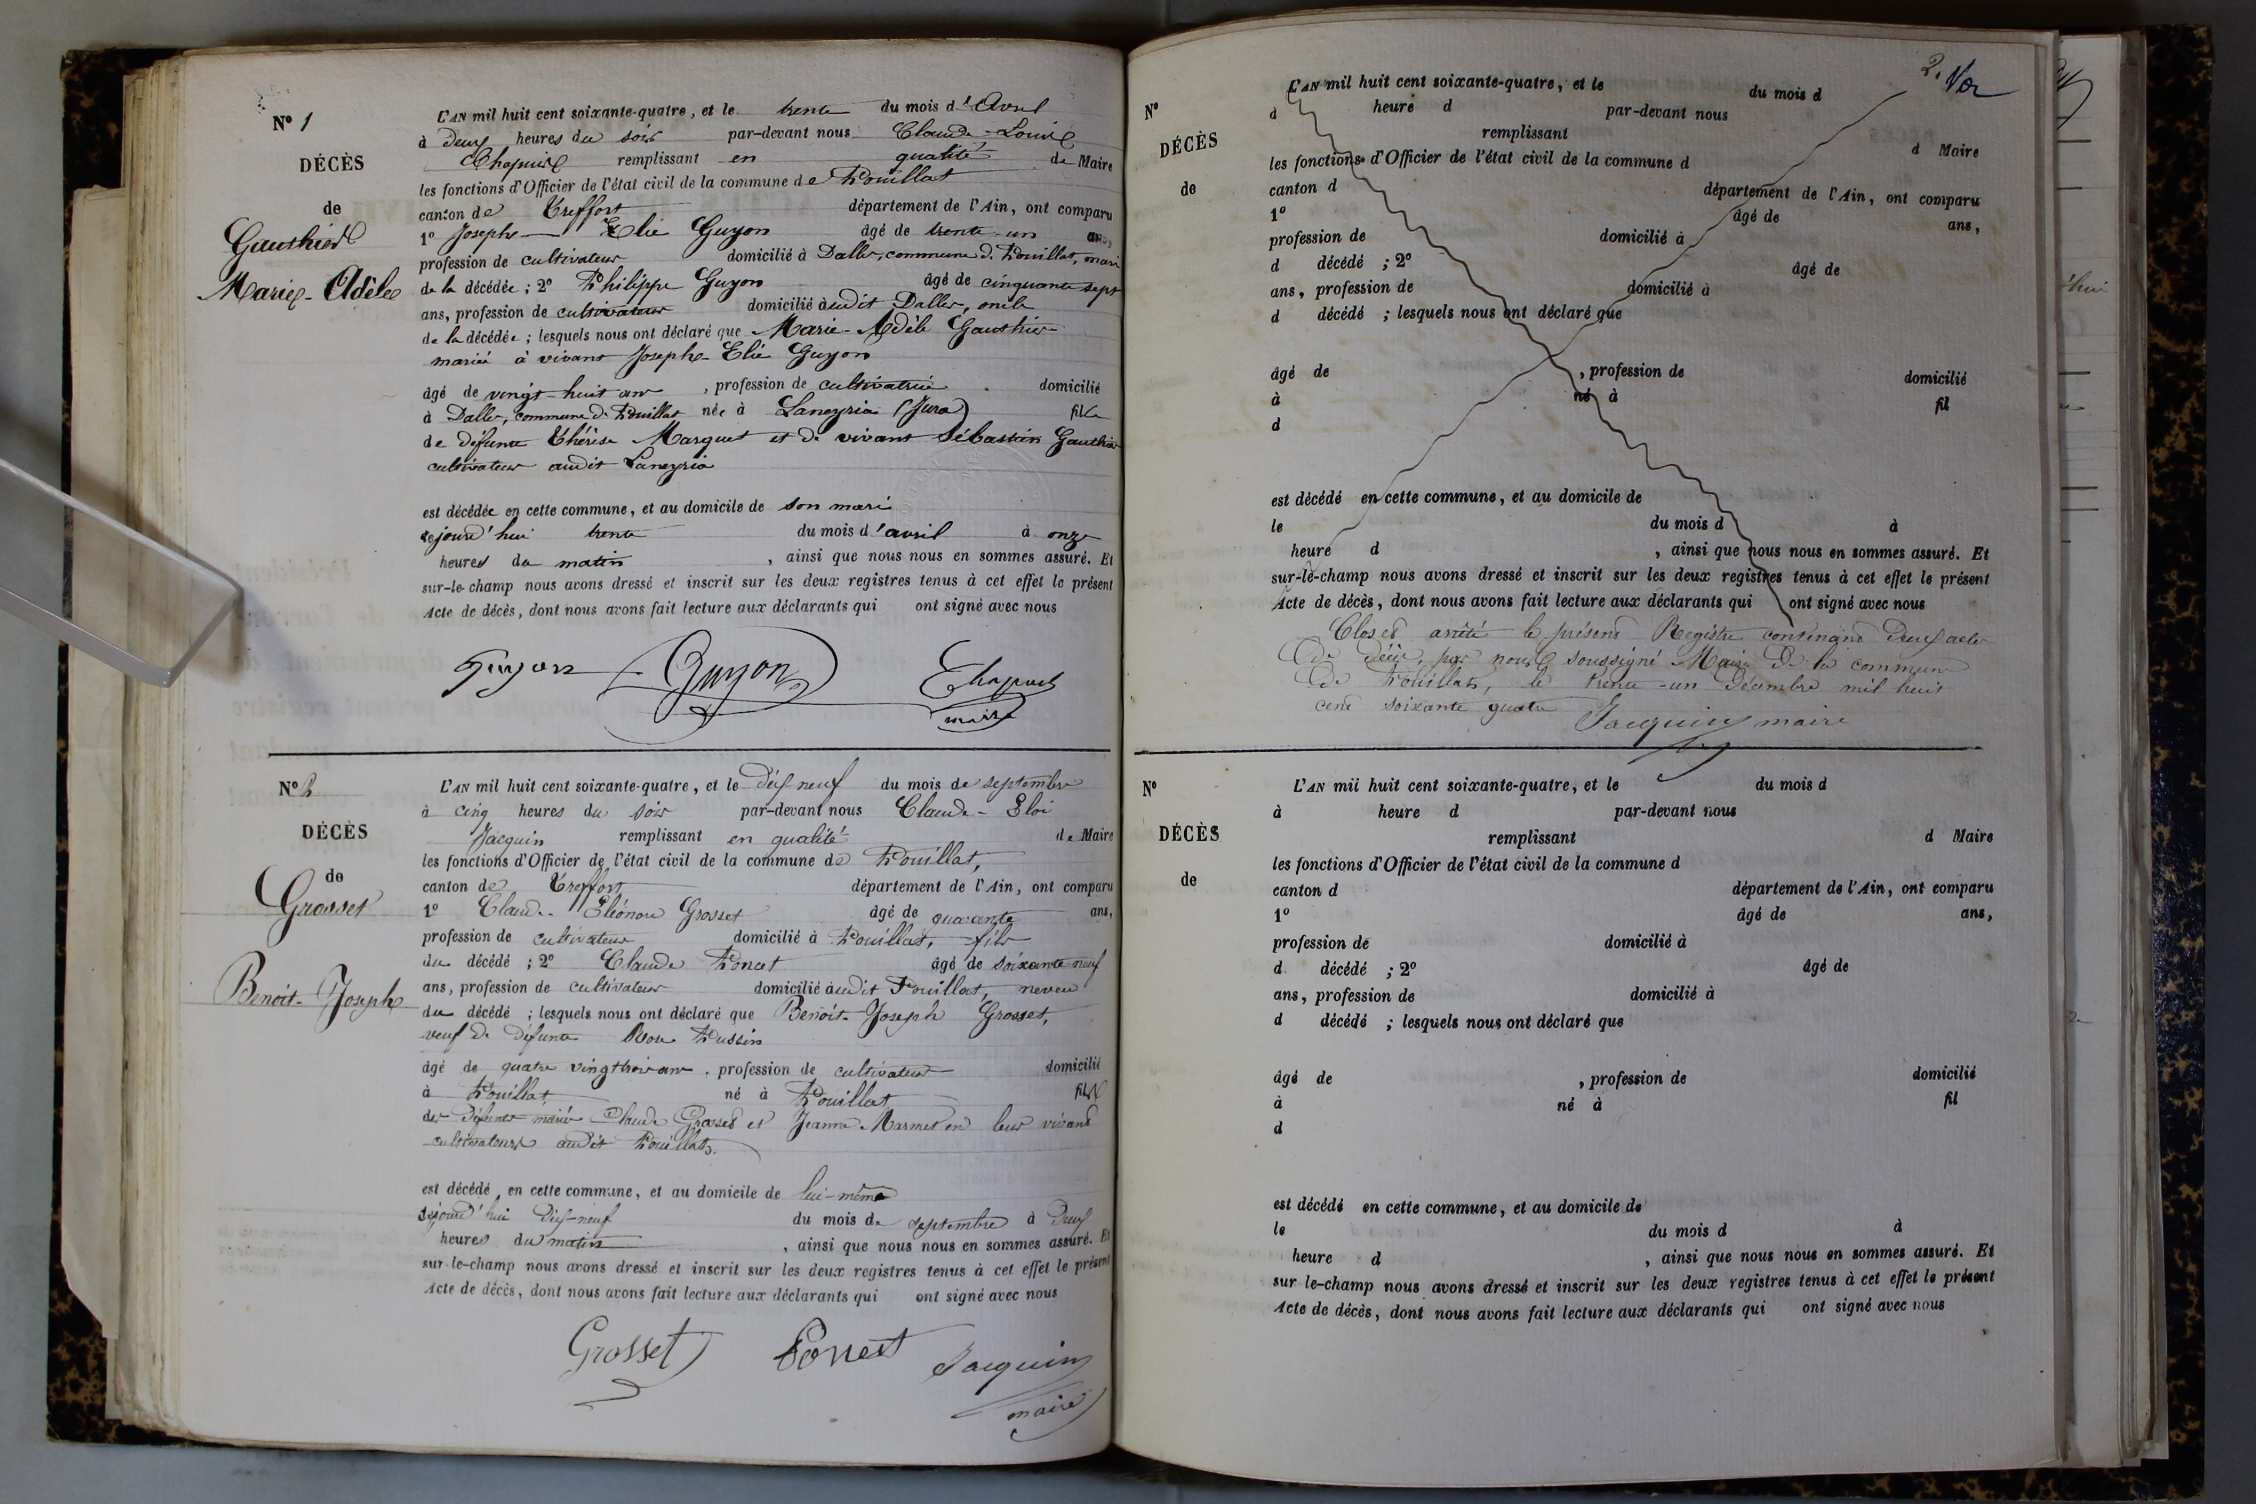 N° 1
DÉCÈS
de
Gauthier
Marie-Adèle
L'AN mil huit cent soixante-quatre, et le trente du mois d'Avril
à Deux heures du soir par-devant nous Claude-Louis
Chapuis remplissant en qualité de Maire
les fonctions d'Officier de l'état civil de la commune de Pouillat
canton de Treffort département de l'Ain, ont comparu
1° Joseph-Elie Guyon âgé de trente-un ans,
profession de cultivateur domicilié à Daller, commune de Pouillat, mari
de la décédée ; 2° Philippe Guyon âgé de cinquante sept
ans, profession de cultivateur domicilié audit Daller, oncle
de la décédée ; lesquels nous ont déclaré que Marie-Adèle Gauthier
mariée à vivant Joseph-Elie Guyon
âgé de vingt-huit ans, profession de cultivatrice domicilié
à Daller, commune de Pouillat née à Laneyria (Jura) fille
de défunte Thérèse Marquet et de vivant Sébastien Gauthier
cultivateur audit Laneyria
est décédée en cette commune, et au domicile de son mari
cejourd'hui trente du mois d'avril à onze
heures du matin, ainsi que nous nous en sommes assuré. Et
sur-le-champ nous avons dressé et inscrit sur les deux registres tenus à cet effet le présent
Acte de décès, dont nous avons fait lecture aux déclarants qui ont signé avec nous
Guyon Guyon Chapuis
maire
N° 2
DÉCÈS
de
Grosset
Benoit-Joseph
L'AN mil huit cent soixante-quatre, et le Dix neuf du mois de septembre
à cinq heures du soir par-devant nous Claude-Eloi
Jacquin remplissant en qualité de Maire
les fonctions d'Officier de l'état civil de la commune de Pouillat,
canton de Treffort département de l'Ain, ont comparu
1° Claude-Eléonore Grosset âgé de quarante ans,
profession de cultivateur domicilié à Pouillat, fils
du décédé ; 2° Claude Poncet âgé de soixante-neuf
ans, profession de cultivateur domicilié audit Pouillat, neveu
du décédé ; lesquels nous ont déclaré que Benoit-Joseph Grosset,
veuf de défunte Rose Pussin
âgé de quatre vingt trois ans, profession de cultivateur domicilié
à Pouillat né à Pouillat fils
de défunts mariés Claude Grosset et Jeanne Marmet en leur vivant
cultivateurs audit Pouillat,
est décédé, en cette commune, et au domicile de lui-même
cejourd'hui dix-neuf du mois de septembre à Deux
heures du matin, ainsi que nous nous en sommes assuré. Et
sur-le-champ nous avons dressé et inscrit sur les deux registres tenus à cet effet le présent
Acte de décès, dont nous avons fait lecture aux déclarants qui ont signé avec nous
Grosset Poncet Jacquin
maire
2.
N°
DÉCÈS
de
L'AN mil huit cent soixante-quatre, et le du mois d
à heure d par-devant nous
remplissant d Maire
les fonctions d'Officier de l'état civil de la commune d
canton d département de l'Ain, ont comparu
1° âgé de ans,
profession de domicilié à
d décédé ; 2° âgé de
ans, profession de domicilié à
d décédé ; lesquels nous ont déclaré que
âgé de , profession de domicilié
à né à fil
d
est décédé en cette commune, et au domicile de
le du mois d à
heure d , ainsi que nous nous en sommes assuré. Et
sur-le-champ nous avons dressé et inscrit sur les deux registres tenus à cet effet le présent
Acte de décès, dont nous avons fait lecture aux déclarants qui ont signé avec nous
Clos et arrêté le présent Registre contenant Deux actes
de Décès, par nous soussigné Maire de la commune
de Pouillat, le trente-un Décembre mil huit
cent soixante quatre Jacquin maire
N°
DÉCÈS
de
L'AN mil huit cent soixante-quatre, et le du mois d
à heure d par-devant nous
remplissant d Maire
les fonctions d'Officier de l'état civil de la commune d
canton d département de l'Ain, ont comparu
1° âgé de ans,
profession de domicilié à
d décédé ; 2° âgé de
ans, profession de domicilié à
d décédé ; lesquels nous ont déclaré que
âgé de , profession de domicilié
à né à fil
d
est décédé en cette commune, et au domicile de
le du mois d à
heure d , ainsi que nous nous en sommes assuré. Et
sur le-champ nous avons dressé et inscrit sur les deux registres tenus à cet effet le présent
Acte de décès, dont nous avons fait lecture aux déclarants qui ont signé avec nous